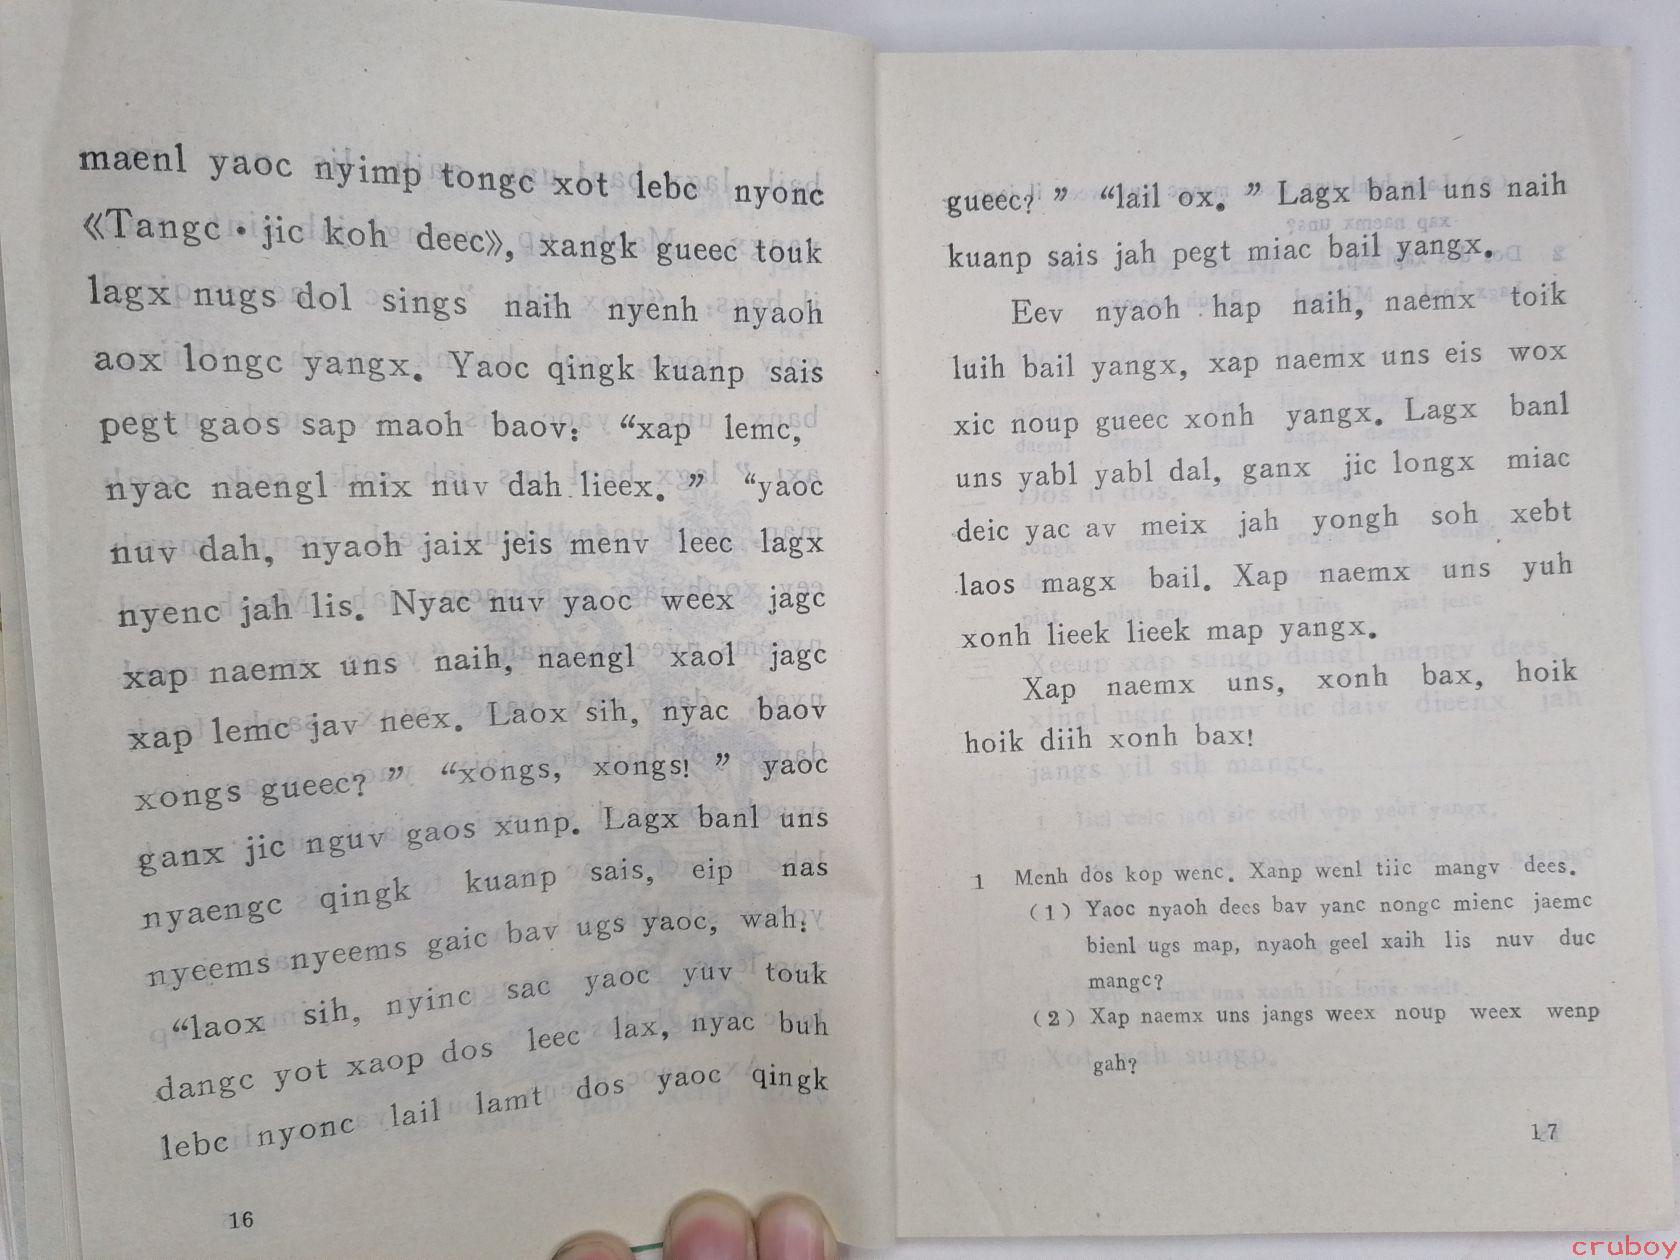 maenl yaoc nyimp tongc xot lebc nyonc
《Tangc·jic koh deec》, xangk gueec touk
lagx nugs dol sings naih nyenh nyaoh
aox longc yangx. Yaoc qingk kuanp sais
pegt gaos sap maoh baov: “xap lemc,
nyac naengl mix nuv dah lieex.” “yaoc
nuv dah, nyaoh jaix jeis menv leec lagx
nyenc jah lis. Nyac nuv yaoc weex jagc
xap naemx uns naih, naengl xaol jagc
xap lemc jav neex. Laox sih, nyac baov
xongs gueec?” “xongs, xongs!” yaoc
ganx jic nguv gaos xunp. Lagx banl uns
nyaengc qingk kuanp sais, eip nas
nyeems nyeems gaic bav ugs yaoc, wah:
“laox sih, nyinc sac yaoc yuv touk
dangc yot xaop dos leec lax, nyac buh
lebc nyonc lail lamt dos yaoc qingk
16
gueec?” “lail ox.” Lagx banl uns naih
kuanp sais jah pegt miac bail yangx.
Eev nyaoh hap naih, naemx toik
luih bail yangx, xap naemx uns eis wox
xic noup gueec xonh yangx. Lagx banl
uns yabl yabl dal, ganx jic longx miac
deic yac av meix jah yongh soh xebt
laos magx bail. Xap naemx uns yuh
xonh lieek lieek map yangx.
Xap naemx uns, xonh bax, hoik
hoik diih xonh bax!
1 Menh dos kop wenc. Xanp wenl tiic mangv dees.
(1) Yaoc nyaoh dees bav yanc nongc mienc jaemc
bienl ugs map, nyaoh geel xaih lis nuv duc
mangc?
(2) Xap naemx uns jangs weex noup weex wenp
gah?
17
cruboy